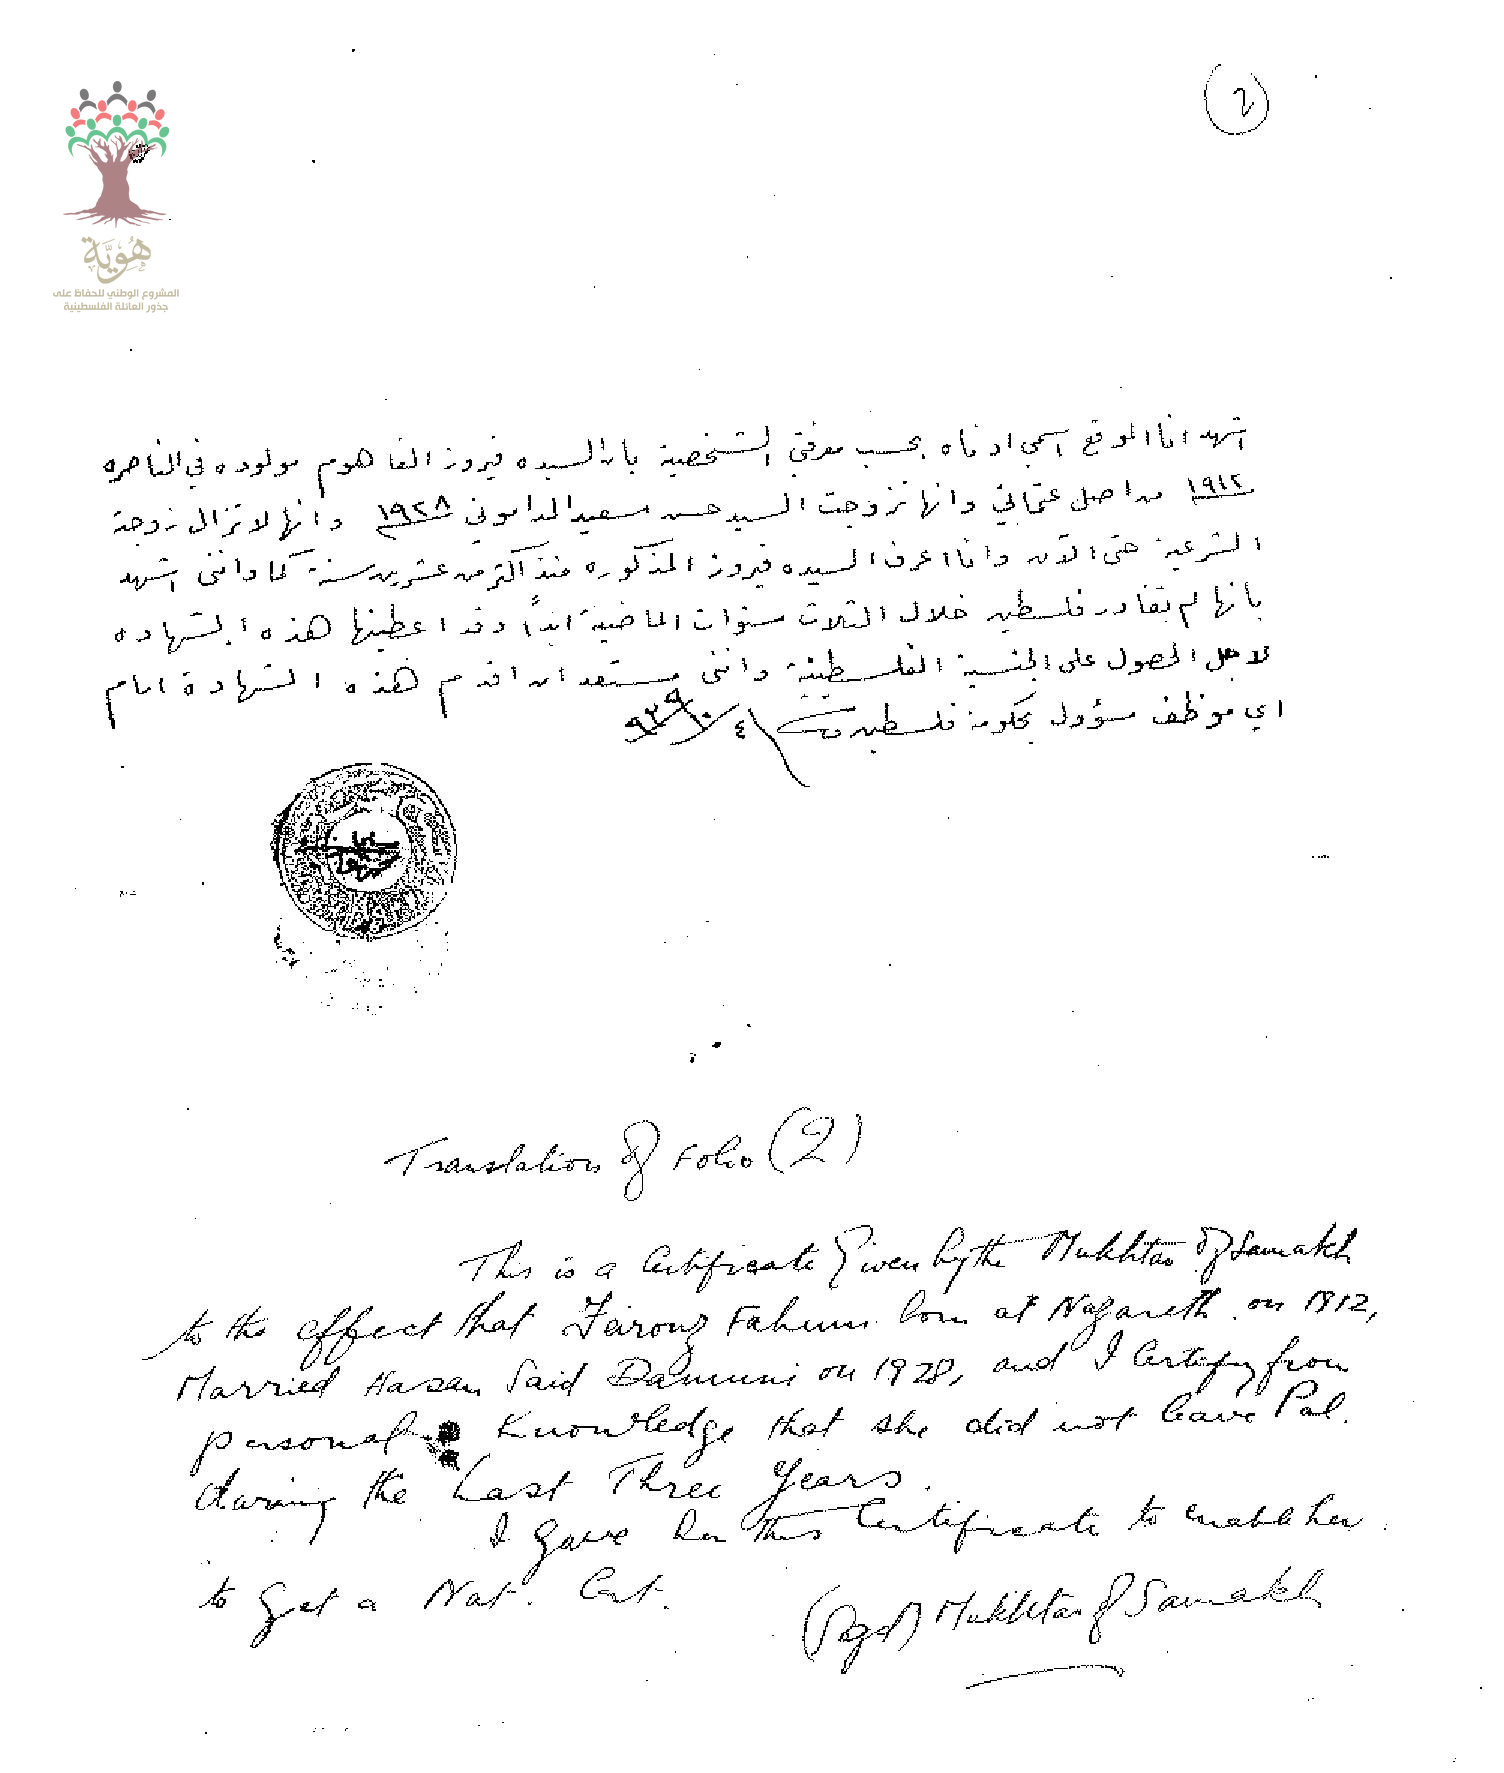 2
هوية
المشروع الوطني للحفاظ على
جذور العائلة الفلسطينية
اشهد انا الموقع اسمي ادناه بحسب معرفتي الشخصية بان السيده فيروز الفاهوم مولوده في الناصره
١٩١٢ من اصل عثماني وانها تزوجت السيد حسن سعيد الداموني ١٩٢٨ وانها لا تزال زوجته
الشرعية حتى الآن وانا اعرف السيده فيروز المذكوره منذ اكثر من عشرين سنة كما وانني اشهد
بانها لم تغادر فلسطين خلال الثلاث سنوات الماضية ابداً وقد اعطيتها هذه الشهاده
لاجل الحصول على الجنسية الفلسطينية وانني مستعد ان اقدم هذه الشهادة امام
اي موظف مسؤول بحكومة فلسطين ٤/١٠/٩٣٩
Translation of Folio (2)
This is a Certificate Given by the Mukhtar of Samakh
to the effect that Fairouz Fahum born at Nazareth on 1912,
Married Hasan Said Damuni on 1928, and I Certify from
personal Knowledge that she did not leave Pal.
during the Last Three Years.
I gave her this Certificate to enable her
to get a Nat. Cert.
(Sgd) Mukhtar of Samakh